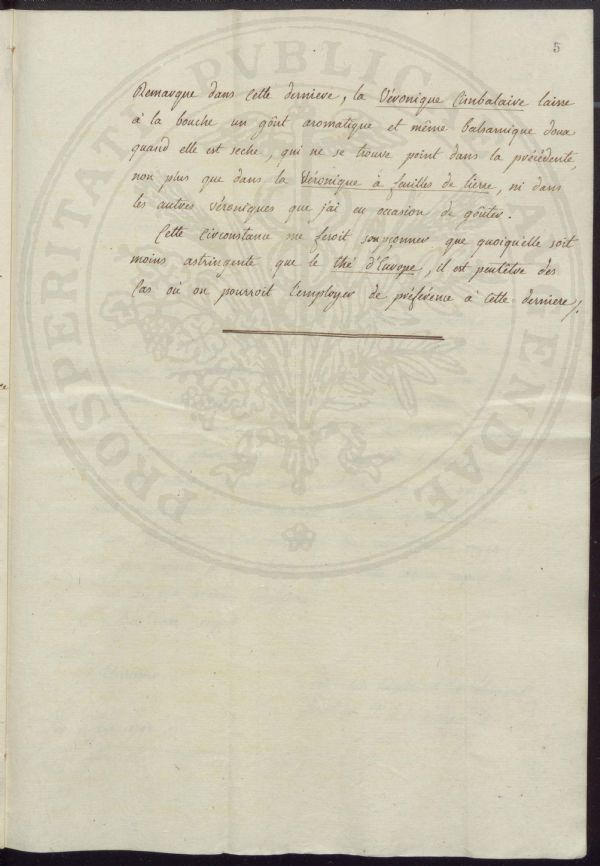 5
Remarque dans cette derniere, la Véronique Cimbalaire laisse
à la bouche un goût aromatique et même balsamique doux
quand elle est seche, qui ne se trouve point dans la précédente,
non plus que dans la Véronique à feuilles de lierre, ni dans
les autres véroniques que j'ai eu occasion de goûter.
Cette circonstance me feroit soupçonner que quoiqu'elle soit
moins astringente que le thé d'Europe, il est peutêtre des
Cas où on pourroit l'employer de préférence à cette derniere /.
PROSPERITATI PVBLICAE AVGENDAE